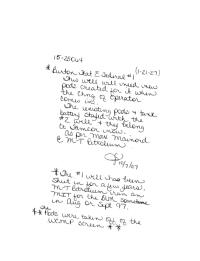 15-25044
* Burton Flat E Federal #1 (1-21-27)
This well will need new
pods created for it when
the chng of operator
comes in.
The existing pods + tank
battery stayed with the
#2 well & they belong
to Samson now.
As per Max Mainord
@ M-T Petroleum
10/2/07
* The #1 well has been
shut in for a few years.
M-T Petroleum ran an
MIT for the BLM sometime
in Aug or Sept 07.
The
** Pods were taken off of the
WCMP screen **